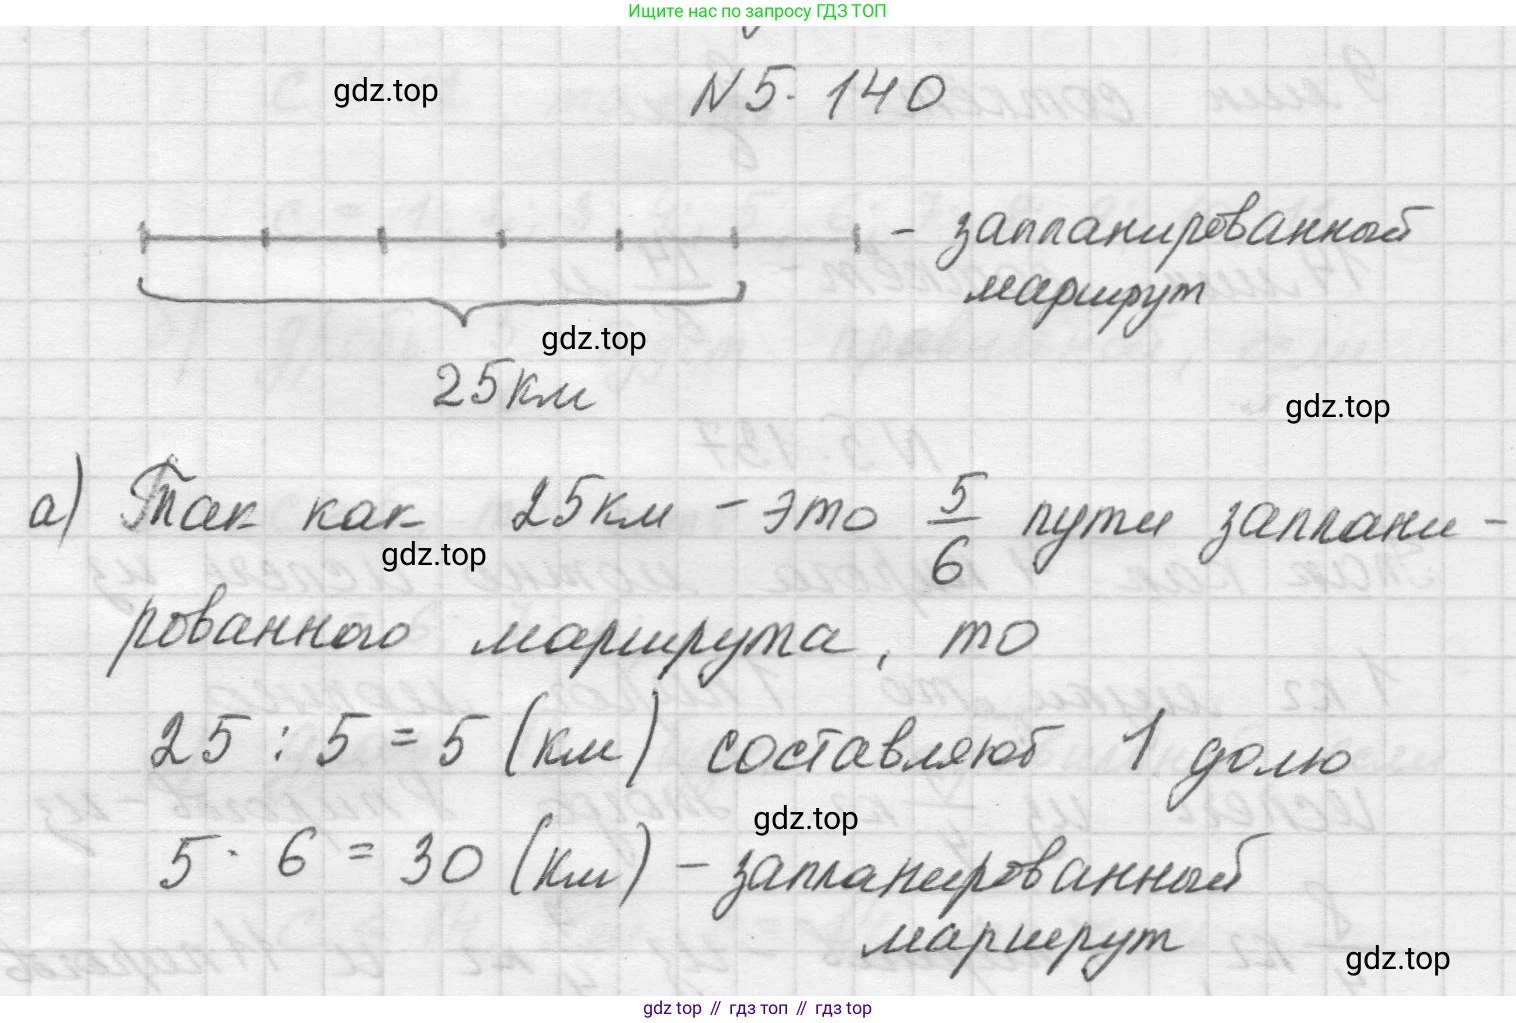 Ищите нас по запросу ГДЗ ТОП
gdz.top
N 5.140
- запланированный
маршрут
gdz.top
25 км
gdz.top
а) Так как 25 км - это 5/6 пути заплани-
gdz.top
рованного маршрута, то
25 : 5 = 5 (км) составляют 1 долю
gdz.top
5 · 6 = 30 (км) - запланированный
маршрут
gdz.top
gdz top // гдз топ // гдз top